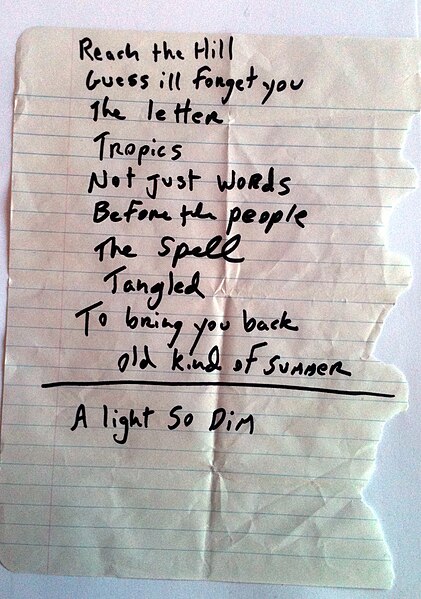 Reach the Hill
Guess ill forget you
The letter
Tropics
Not just words
Before the people
The Spell
Tangled
To bring you back
old kind of SUMMER
A light So DiM